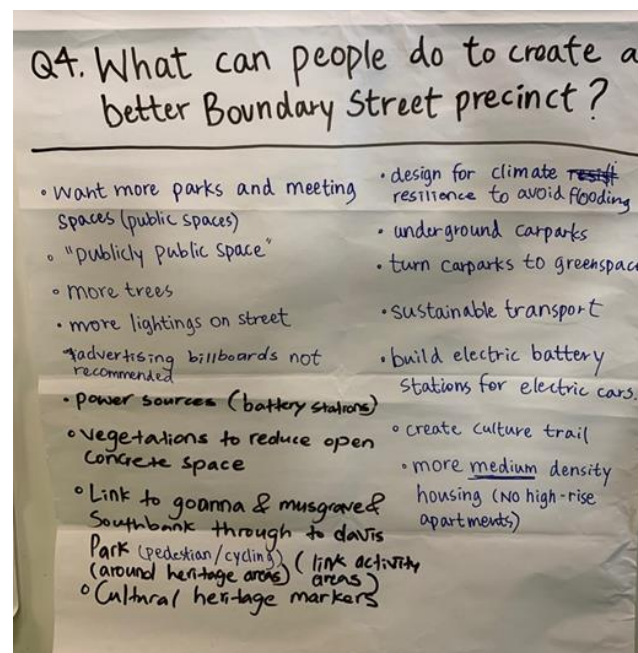 Q4. What can people do to create a
better Boundary Street precinct?
• Want more parks and meeting
spaces (public spaces)
• "publicly public space"
• more trees
• more lightings on street
*advertising billboards not
recommended
• power sources (battery stations)
• vegetations to reduce open
concrete space
• Link to goanna & musgrave &
Southbank through to davis
Park (pedestian/cycling) (link activity
(around heritage areas) areas)
• Cultural heritage markers
• design for climate
resilience to avoid flooding
• underground carparks
• turn carparks to greenspac
• sustainable transport
• build electric battery
stations for electric cars.
• create culture trail
• more medium density
housing (No high-rise
apartments)